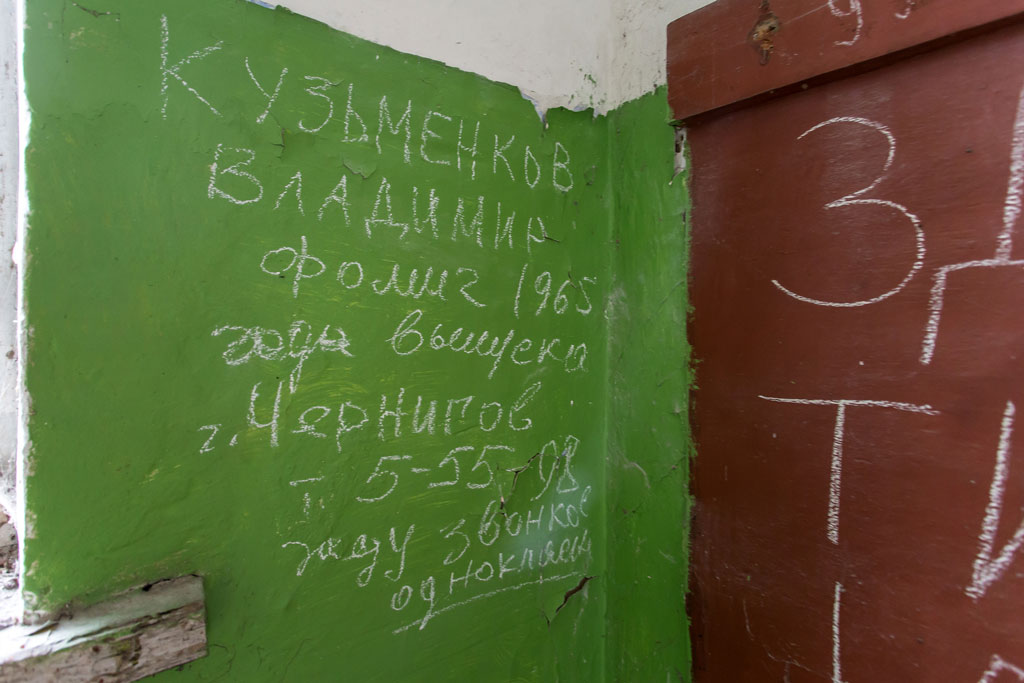 КУЗЬМЕНКОВ
ВЛАДИМИР
фолиг 1965
года выпуска
г. Чернигов
т 5-55-98
жду звонков
однокласн
ЗД
Т